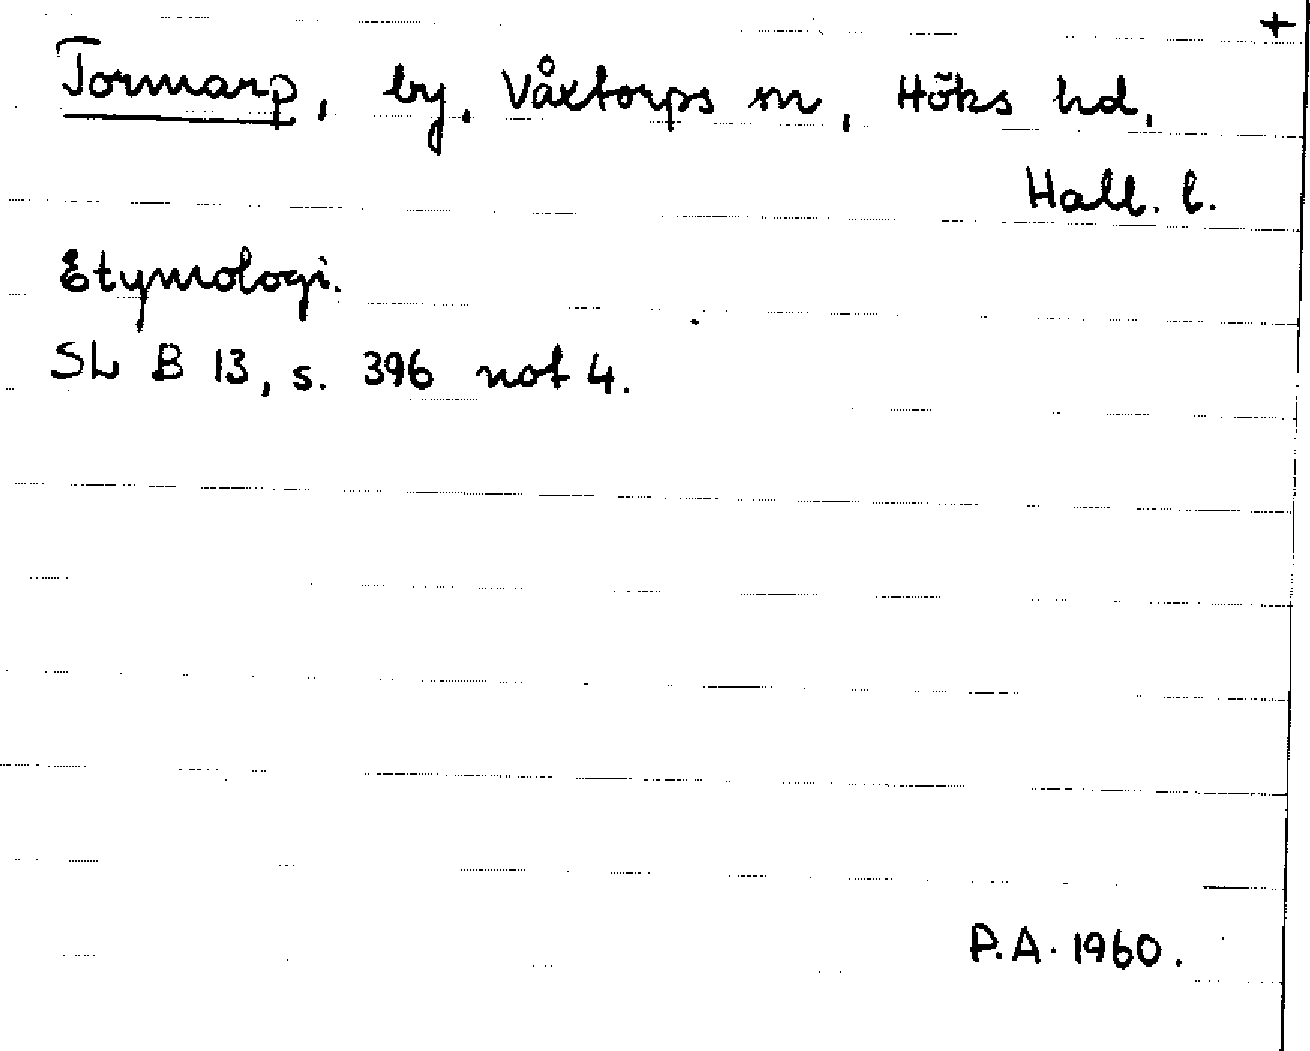 +
Tormarp, by, Våxtorps sn, Höks hd,
Hall. l.
Etymologi.
SL B 13, s. 396 not 4.
P.A. 1960.